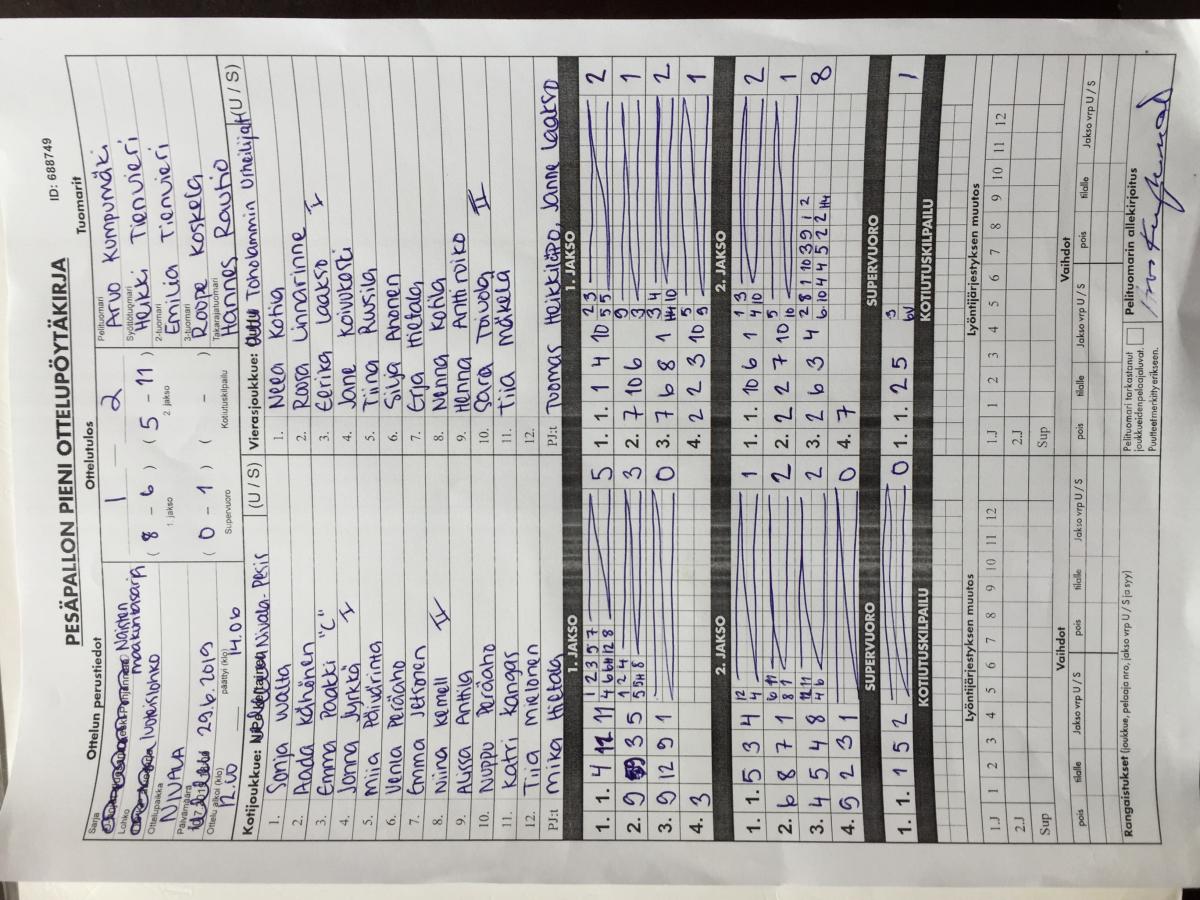 PESÄPALLON PIENI OTTELUPÖYTÄKIRJA
ID: 688749
Ottelun perustiedot
Ottelutulos
Tuomarit
Sarja
Naisten
maakuntasarja
Lohko
Luoteislohko
Ottelupaikka
NIVALA
Päivämäärä
29.6.2019
Ottelu alkoi (klo)
12.00
päättyi (klo)
14.06
1 - 2
( 8 - 6 ) ( 5 - 11 )
1. jakso
2. jakso
( 0 - 1 ) ( - )
Supervuoro
Kotiutuskilpailu
Pelituomari
Arvo Kumpumäki
Syöttötuomari
Heikki Tienvieri
2-tuomari
Emilia Tienvieri
3-tuomari
Roope Koskela
Takarajatuomari
Hannes Rautio
Kotijoukkue: Nivala-Pesis (U / S)
1. Sonja
2. Aada Kähönen
3. Emma Paakki "C"
4. Jonna Jynkkä I
5. Miia Pöllärinta
6. Venla Peräaho
7. Emma Jetsonen
8. Niina Kemell II
9. Alissa Anttila
10. Nuppu Peräaho
11. Katri Kangas
12. Tiia Mielonen
PJ:t Mika Hietala
Vierasjoukkue: Toholammin Urheilijat (U / S)
1. Neea Kotila
2. Roosa Linnarinne
3. Eerika Laakso I
4. Jane Koivukoski
5. Tiina Rusila
6. Silja Ahonen
7. Erja Hietala
8. Nenna Kotila
9. Henna Anttiroiko
10. Sara Toivola II
11. Tiia Mäkelä
12.
PJ:t Tuomas Heikkilä, Janne Laakso
1. JAKSO
1. JAKSO
1. 1. 4 12 11 1 2 3 5 7 5
4 6 11 12 8
2. 9 3 5 1 2 4 3
5 11 8
3. 9 12 9 1 0
4. 3
1. 1. 1 4 10 2 3 2
5 5
2. 7 10 6 9 1
3
3. 7 6 8 1 3 4 2
11 10
4. 2 2 3 10 5 1
9
2. JAKSO
2. JAKSO
1. 1. 5 3 4 12 1
4
2. 6 8 7 1 6 11 2
8 1
3. 4 5 4 8 12 11 2
4 6
4. 9 2 3 1 0
1. 1. 10 6 1 1 3 2
4 10
2. 2 2 7 10 5 1
10
3. 2 6 3 4 2 8 1 10 3 9 1 2 8
6 10 4 4 5 2 2 11
4. 7
SUPERVUORO
SUPERVUORO
1. 1. 1 5 2 0
1. 1. 2 5 3 1
6v
KOTIUTUSKILPAILU
KOTIUTUSKILPAILU
Lyöntijärjestyksen muutos
Lyöntijärjestyksen muutos
1.J 1 2 3 4 5 6 7 8 9 10 11 12
2.J
Sup
1.J 1 2 3 4 5 6 7 8 9 10 11 12
2.J
Sup
Vaihdot
Vaihdot
pois tilalle Jakso vrp U / S pois tilalle Jakso vrp U / S
pois tilalle Jakso vrp U / S pois tilalle Jakso vrp U / S
Rangaistukset (joukkue, pelaaja nro, jakso vrp U / S ja syy)
Pelituomari tarkastanut
joukkueiden pelaajaluvat.
Puutteet merkitty erikseen.
Pelituomarin allekirjoitus